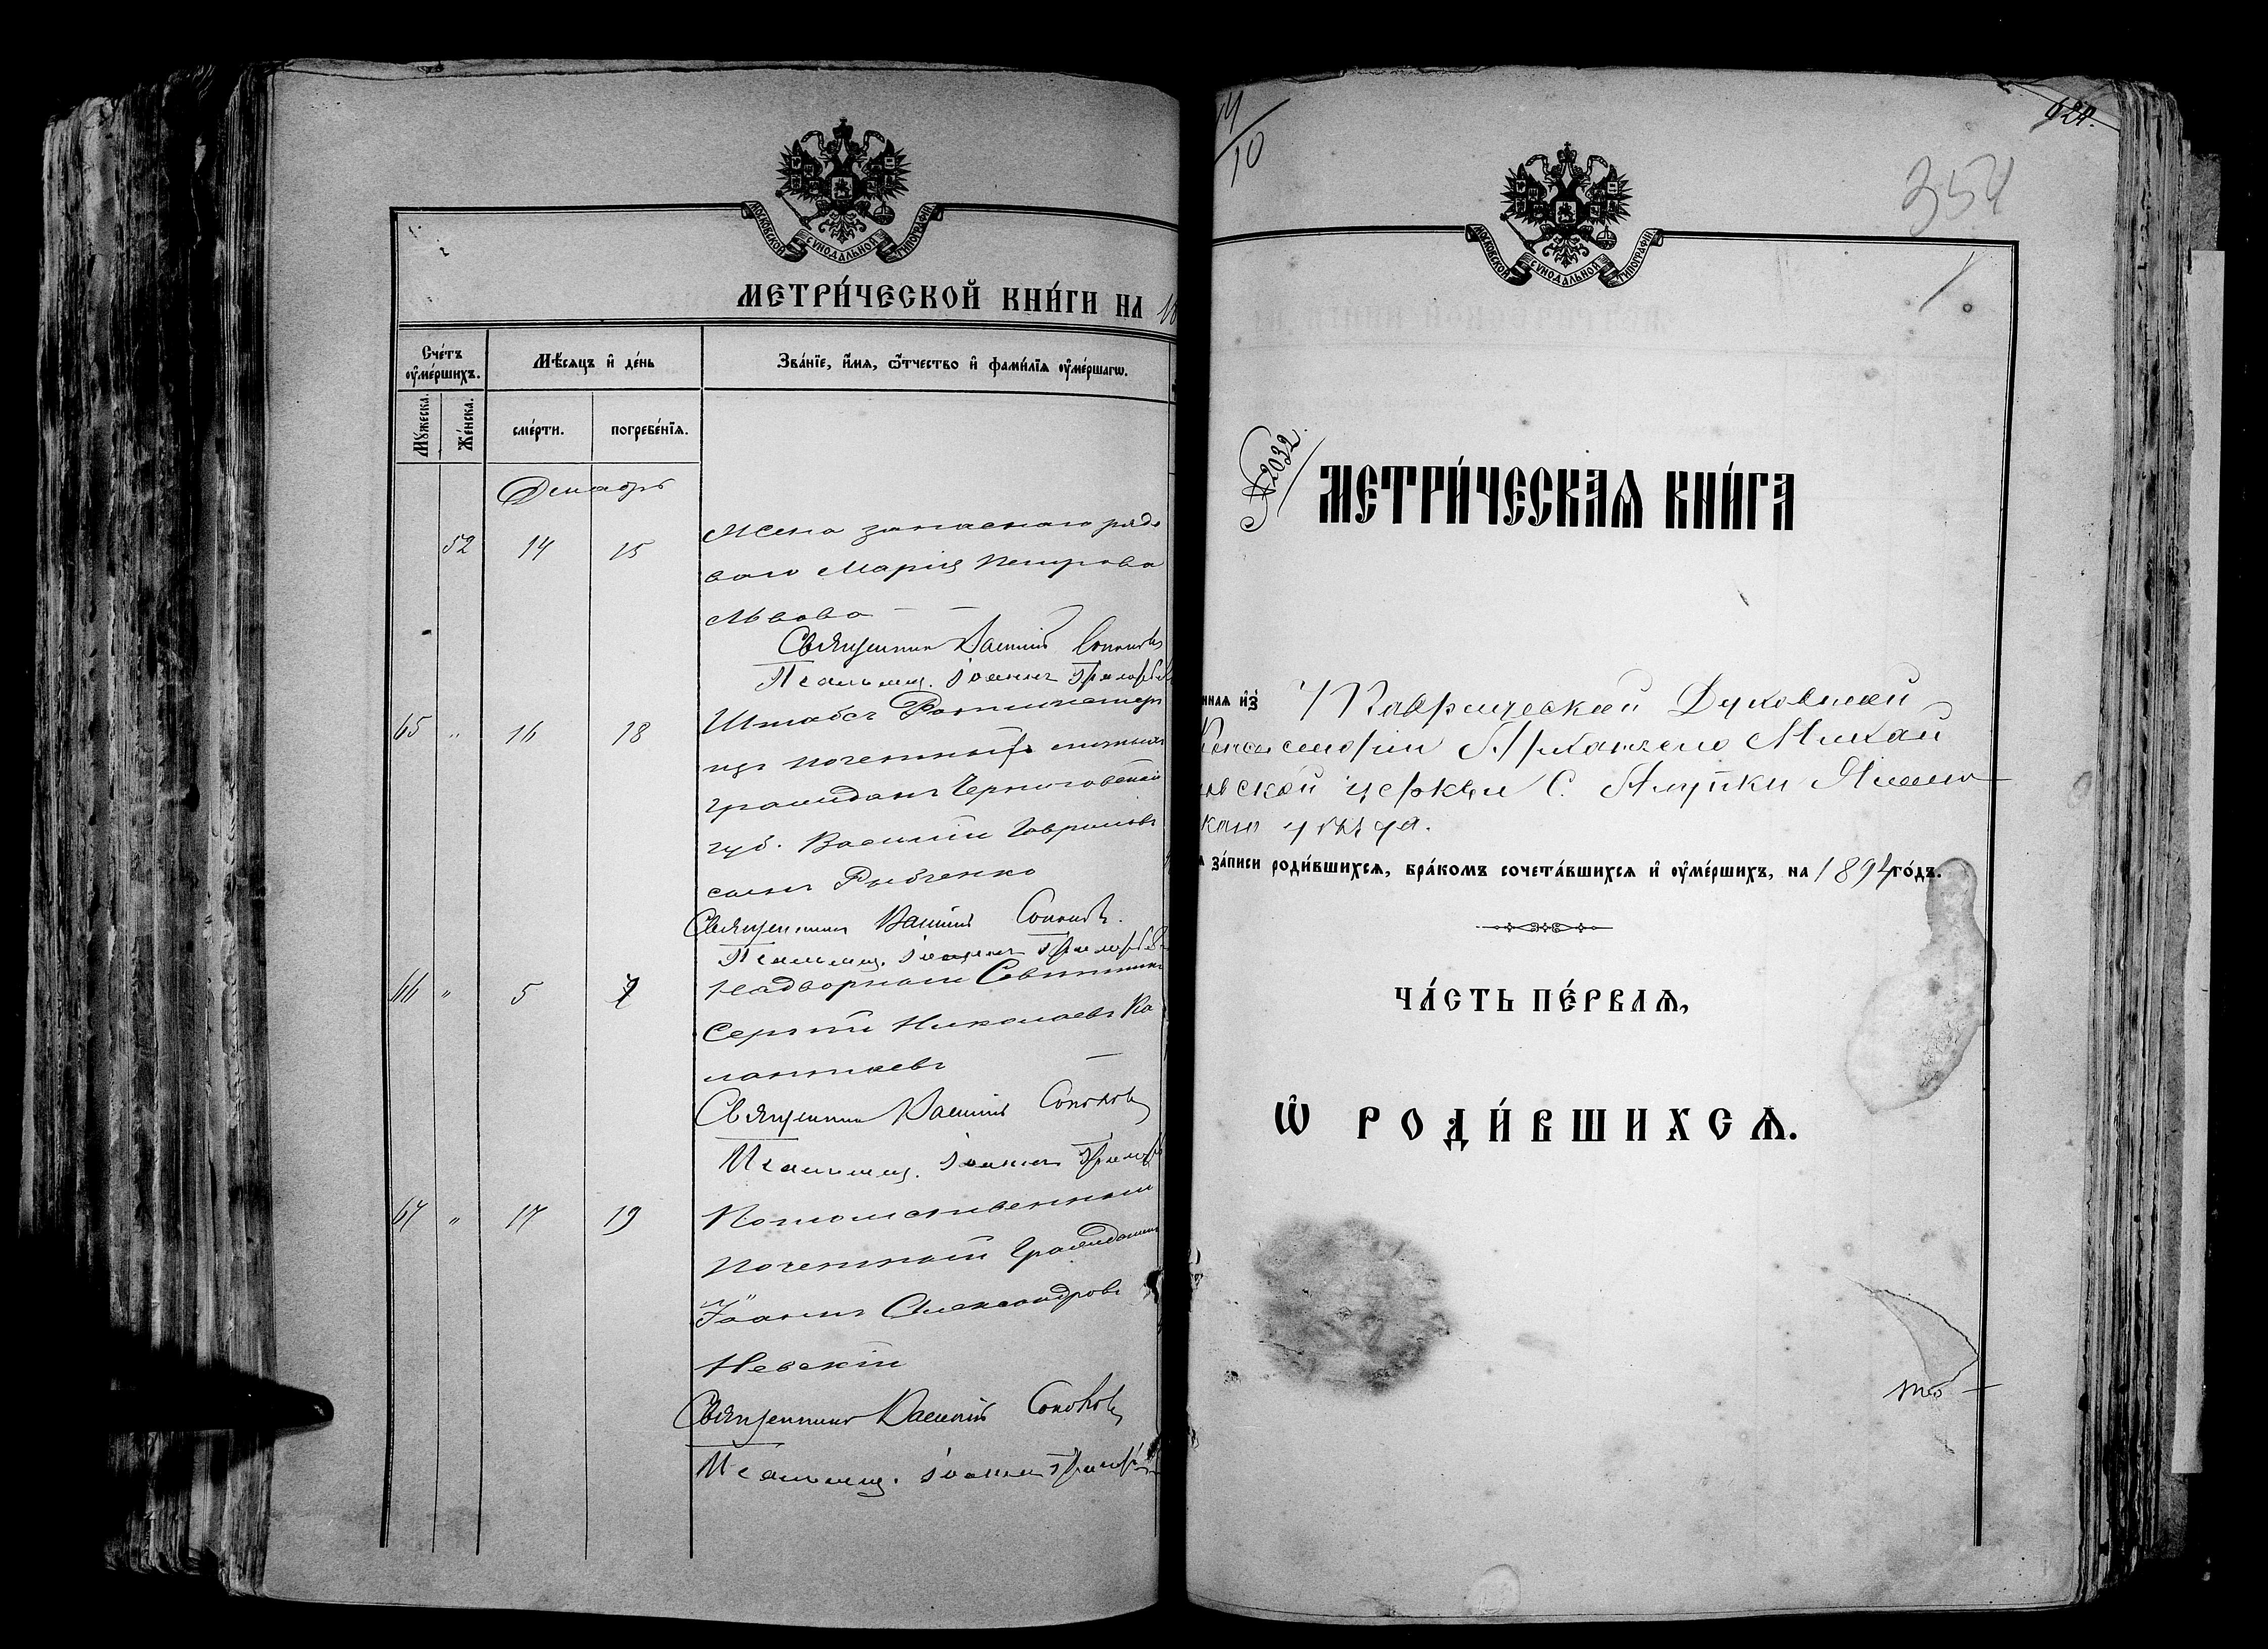 МОСКОВСКОЙ СѴНОДАЛЬНОЙ ТИПОГРАФІИ
МЕТРИ́ЧЕСКОЙ КНИ́ГИ НА 18
Сче́тъ ᲂу҆ме́ршихъ.
Мѣ́сяцъ и҆ де́нь
Зва́нїе, и҆́мѧ, ѻ҆́тчество и҆ фами́лїѧ ᲂу҆ме́ршагѡ.
Мꙋ́жеска.
Же́нска.
сме́рти.
погребе́нїѧ.
Декабрь
52 14 15 Жена запаснаго рядо
ваго Марія Петрова
Львова
Священникъ Василій Соколовъ
Псаломщ. Іоаннъ
65 „ 16 18 Штабсъ Ротмистеръ
изъ почетныхъ
гражданъ Черниговской
губ. Василій Гавриловъ
сынъ Рыбченко
Священникъ Василій Соколовъ.
Псаломщ. Іоаннъ
66 „ 5 7 Надворный Совѣтникъ
Сергѣй Николаевъ Ка
лантаевъ
Священникъ Василій Соколовъ
Псаломщ. Іоаннъ
67 „ 17 19 Потомственный
почетный Гражданинъ
Іоаннъ Александровъ
Невскій
Священникъ Василій Соколовъ
Псаломщ. Іоаннъ
10
424.
354
МОСКОВСКОЙ СѴНОДАЛЬНОЙ ТИПОГРАФІИ
№ 2032
МЕТРИ́ЧЕСКАѦ КНИ́ГА
нная и҆з̾ Таврической Духовной
Консисторіи Архангело Михай
ловской церкви С. Алупки Ялтин
скаго уѣзда.
ѧ за́писи роди́вшихсѧ, бра́комъ сочета́вшихсѧ и҆ ᲂу҆ме́ршихъ, на 1894 го́дъ.
ЧА́СТЬ ПЕ́РВАѦ,
Ѡ҆ РОДИ́ВШИХСѦ.